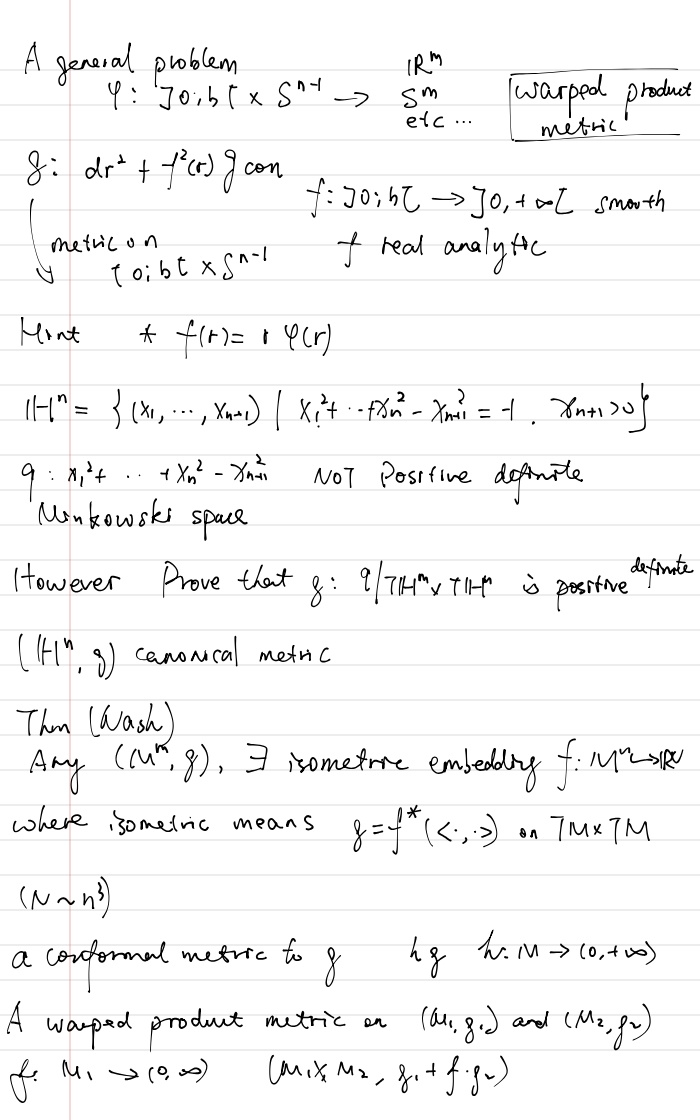 A general problem
φ: ]0;b[ × S^{n-1} → ℝ^m
S^m
etc ...
warped product
metric
g: dr² + f²(r) g con
f: ]0;b[ → ]0,+∞[ smooth
metric on
[0;b[ × S^{n-1}
f real analytic
Hint * f(r)= r φ(r)
ℍ^n = { (x₁, ..., x_{n+1}) | x₁² + ... + x_n² - x_{n+1}² = -1 . x_{n+1} > 0 }
q : x₁² + .. + x_n² - x_{n+1}² NOT Positive definite
Minkowski space
However Prove that g: q/Tℍ^n × Tℍ^n is positive definite
(ℍ^n, g) canonical metric
Thm (Nash)
Any (M^n, g), ∃ isometric embedding f: M^n ↪ ℝ^N
where isometric means g = f*(<·,·>) on TM×TM
(N ~ n³)
a conformal metric to g hg h: M → (0,+∞)
A warped product metric on (M₁, g₁) and (M₂, g₂)
f: M₁ → (0,∞) (M₁ × M₂, g₁ + f·g₂)